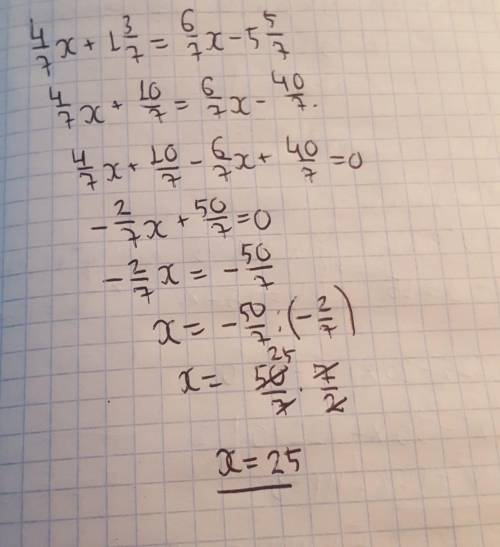 4/7 x + 1 3/7 = 6/7 x - 5 5/7
4/7 x + 10/7 = 6/7 x - 40/7.
4/7 x + 10/7 - 6/7 x + 40/7 = 0
- 2/7 x + 50/7 = 0
- 2/7 x = - 50/7
x = - 50/7 : (- 2/7)
x = 50/7 · 7/2 25
x = 25